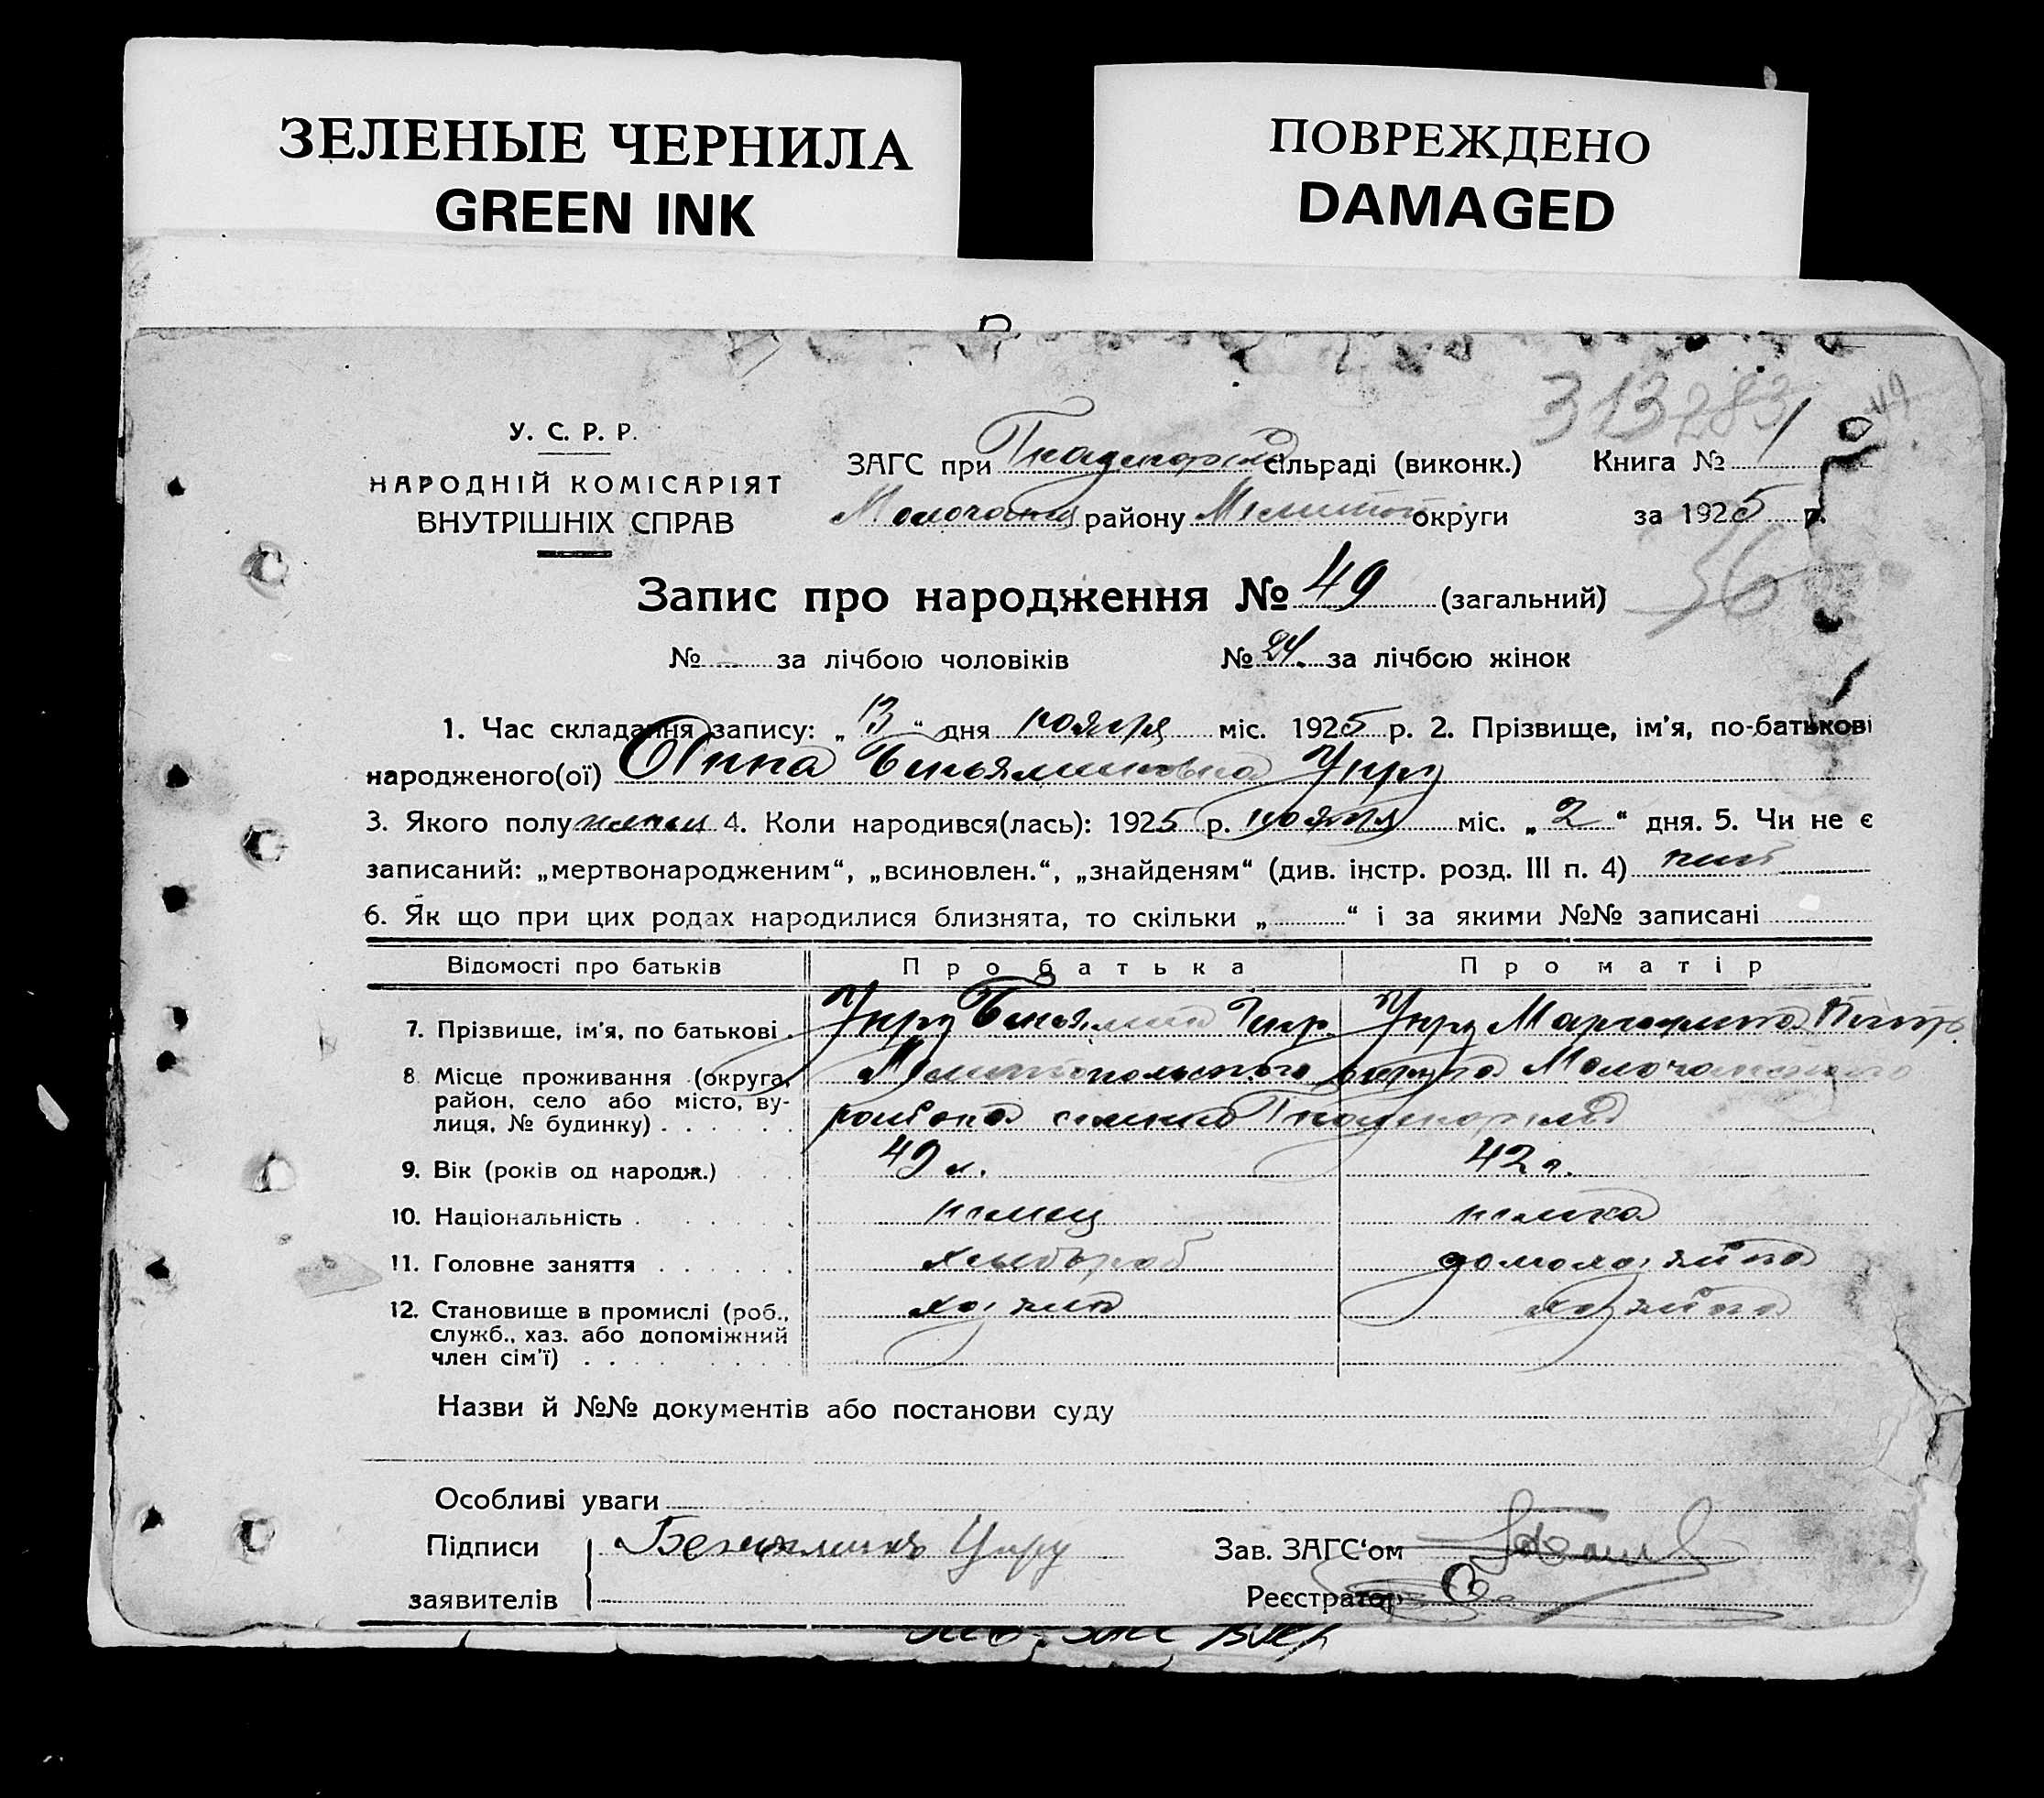 ЗЕЛЕНЫЕ ЧЕРНИЛА
GREEN INK
ПОВРЕЖДЕНО
DAMAGED
313283
У. С. Р. Р.
НАРОДНІЙ КОМІСАРІЯТ
ВНУТРІШНІХ СПРАВ
ЗАГС при Гнаденфельд сільраді (виконк.) Книга № 1
Молочанц району Мелитоп округи за 1925 р.
36
Запис про народження № 49 (загальний)
№ — за лічбою чоловіків № 24. за лічбою жінок
1. Час складання запису: „13“ дня ноября міс. 1925 р. 2. Прізвище, ім'я, по-батькові
народженого(ої) Анна Беньяминовна Унру
3. Якого полу женщ 4. Коли народився(лась): 1925 р. ноября міс. „2“ дня. 5. Чи не є
записаний: „мертвонародженим“, „всиновлен.“, „знайденям“ (див. інстр. розд. III п. 4) нет
6. Як що при цих родах народилися близнята, то скільки „ “ і за якими №№ записані
Відомості про батьків Про батька Про матір
7. Прізвище, ім'я, по батькові Унру Беньямин Унру Маргарита Петр.
8 Місце проживання (округа, район, село або місто, вулиця, № будинку) Мелитопольского округа Молочанского
района село Гнаденфельд
9. Вік (років од народж.) 49 л. 42 г.
10. Національність немец немка
11. Головне заняття хлебороб домохозяйка
12. Становище в промислі (роб., служб., хаз. або допоміжний член сім'ї) хозяин хозяйка
Назви й №№ документів або постанови суду
Особливі уваги
Підписи Беньяминъ Унру Зав. ЗАГС‘ом
заявителів Реєстратор